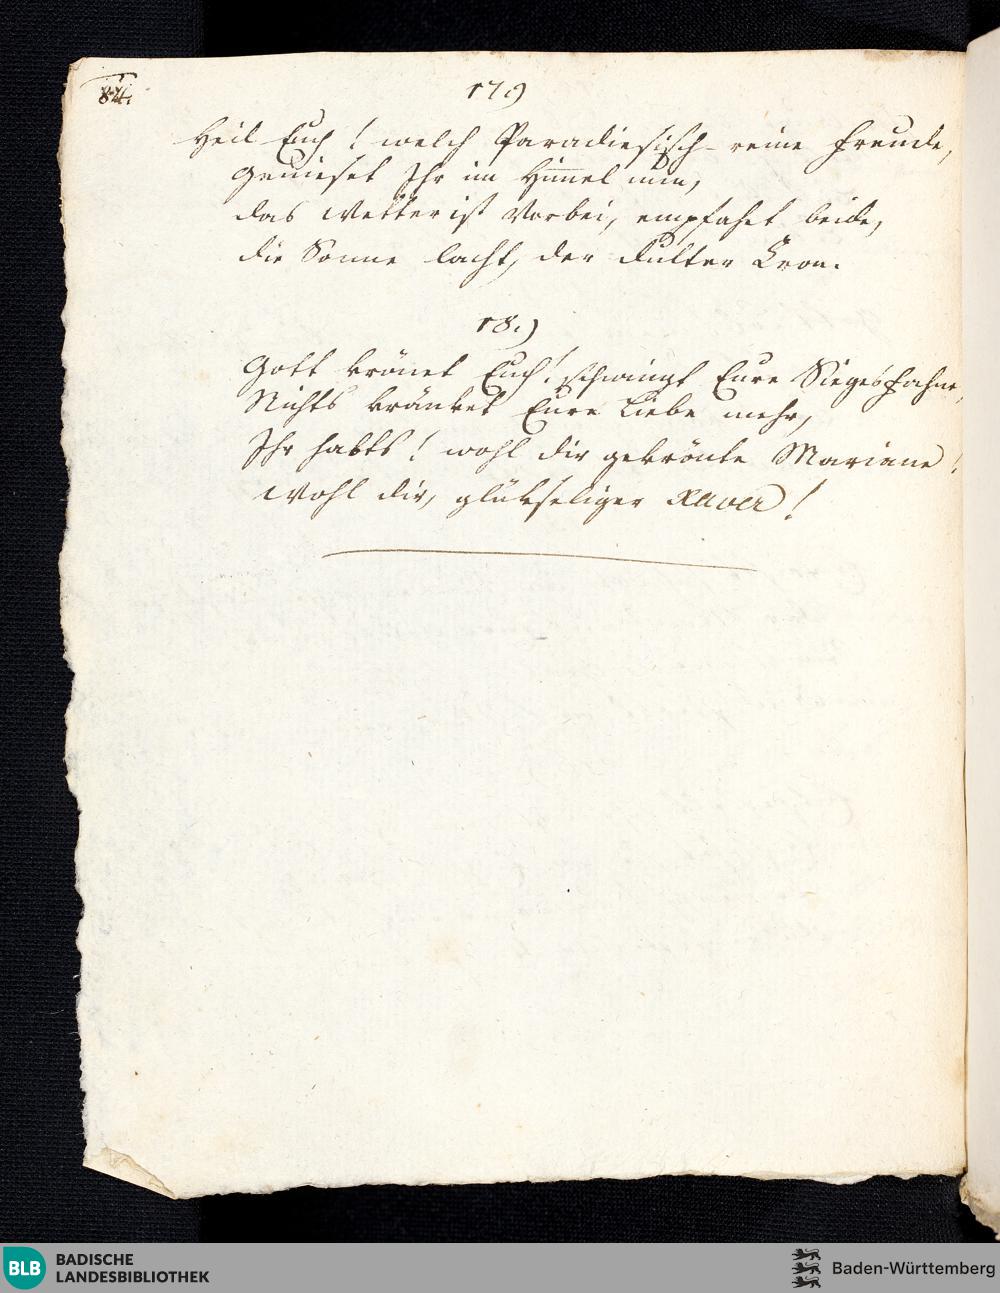 84.
17.)
Heil Euch! welch Paradiesisch-reine Freude,
genieset Ihr im Himel nun,
das Wetter ist vorbei, empfahet beide,
die Sonne lacht, der Dulter Kron.
18.)
Gott krönet Euch! schwingt Eure Siegesfahne,
Nichts kränket Eure Liebe mehr,
Ihr habts! wohl dir gekrönte Mariane!
Wohl dir, glükseliger Xaver!
BLB
BADISCHE
LANDESBIBLIOTHEK
Baden-Württemberg